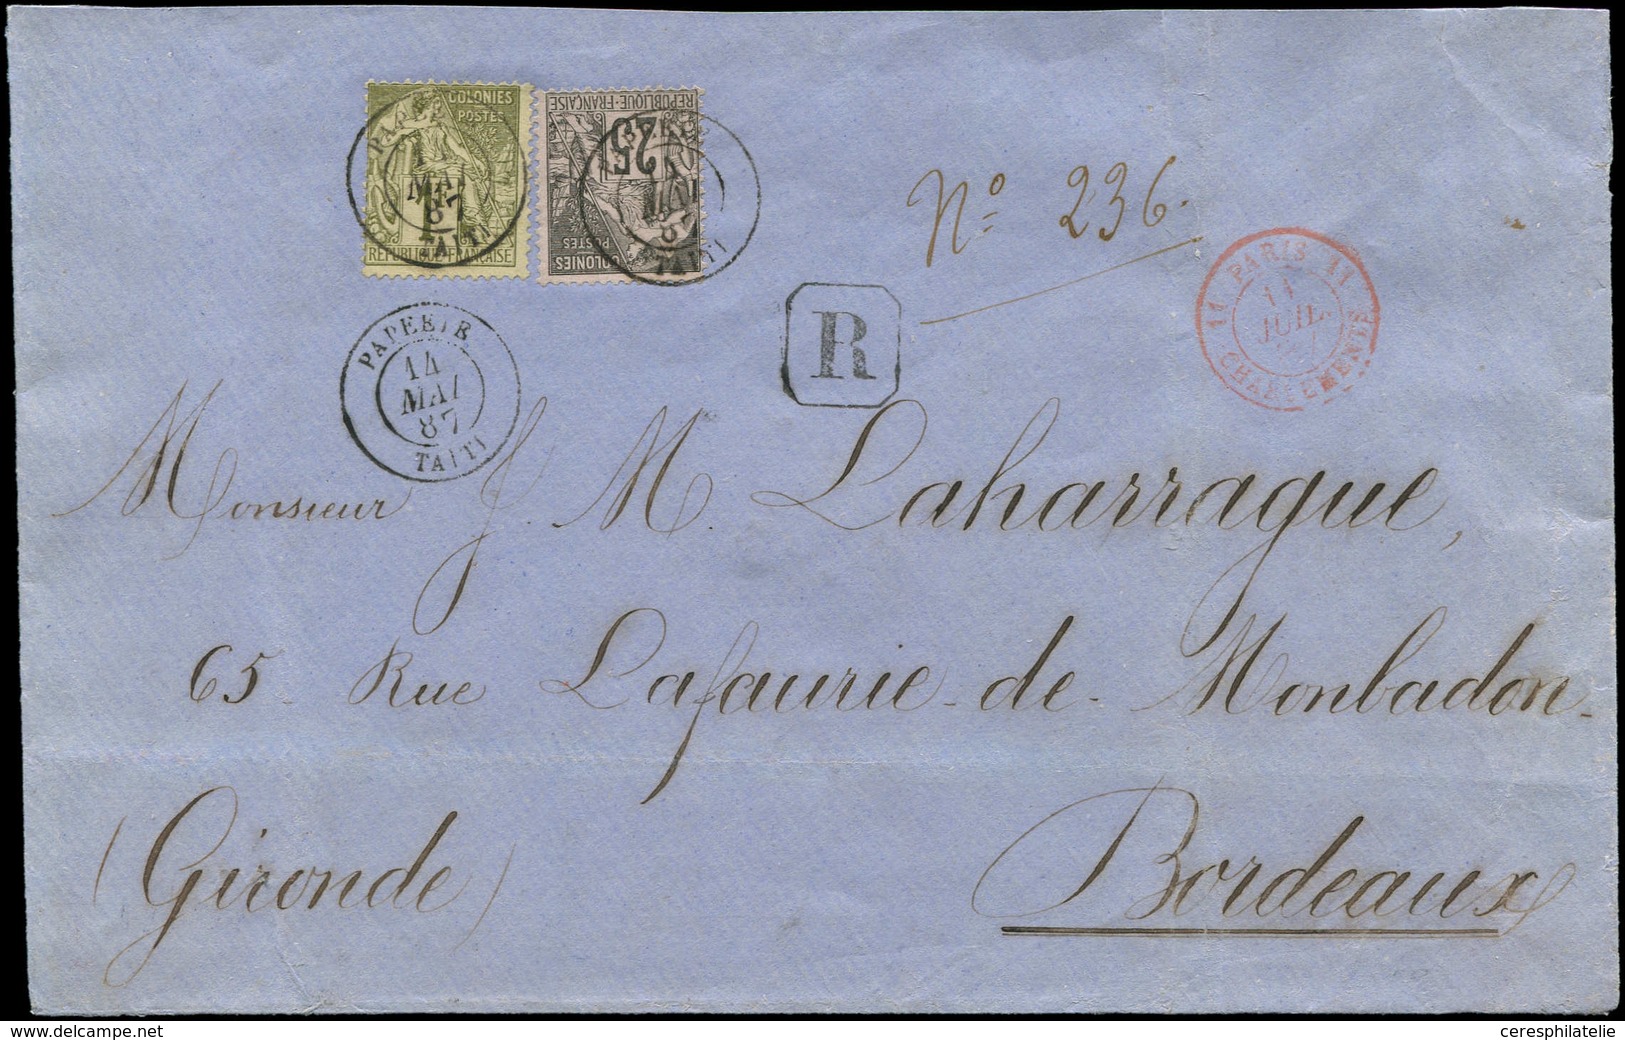 COLONIES
POSTES
1F
REPUBLIQUE FRANÇAISE
MAI
87
TAITI
REPUBLIQUE FRANÇAISE
25
POSTES
COLONIES
MAI
87
TAITI
PAPEETE
14
MAI
87
TAITI
R
N° 236.
11 PARIS 11
11
JUIL.
CHARGEMENTS
Monsieur J. M. Laharrague,
65 Rue Lafaurie-de-Monbadon-
(Gironde) Bordeaux
delcampe.net
ceresphilatelie